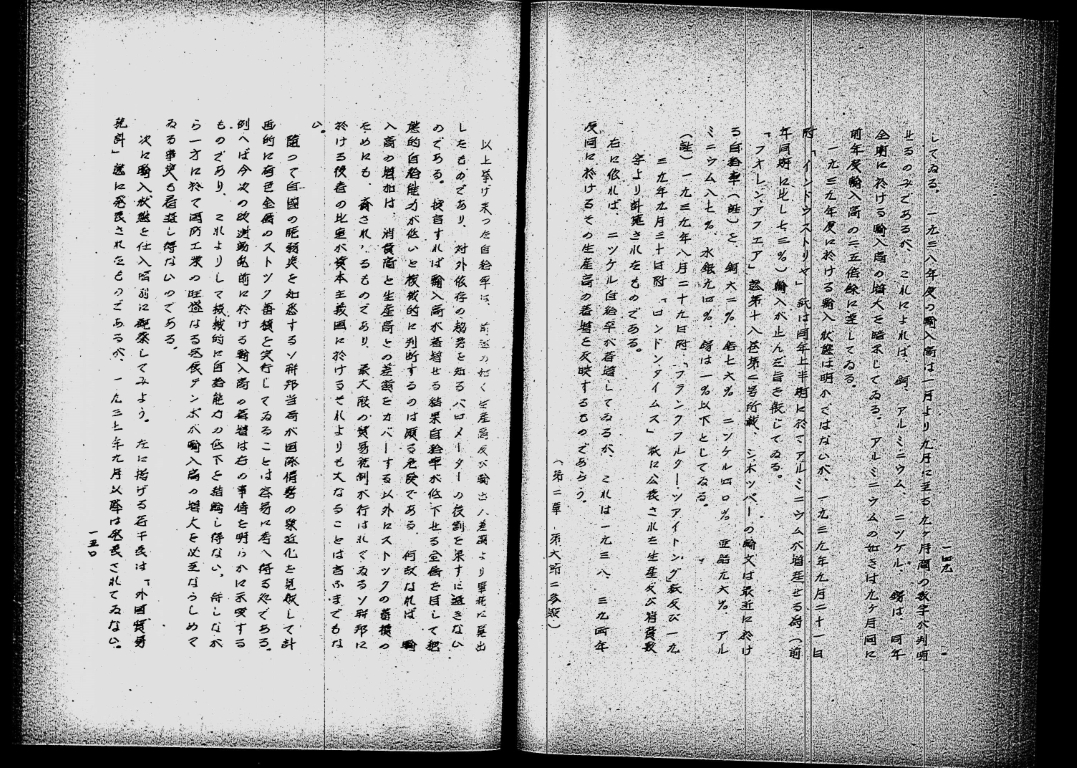 一四九
してゐる。一九三八年度の輸入高は一月より九月に至る九ヶ月間の数字が判明
止るのみであるが、これによれば、銅、アルミニウム、ニッケル、錫は、同年
全期に於ける輸入高の増大を暗示してゐる。アルミニウムの如きは九ヶ月間に
前年度輸入高の二五倍餘に達してゐる。
一九三九年度に於ける輸入状態は明かではないが、一九三九年九月二十一日
附「インドウストリヤ」紙は同年上半期に於てアルミニウムが増産せる為（前
年同期に比し七二%）輸入が止んだ旨を報じてゐる。
「フオレン、アフエア」誌第十八巻第二号所載、シボッベーの論文は最近に於け
る自給率（註）を、銅六二%、鉛七六%、ニッケル四〇%、亜鉛九六%、アル
ミニウム八七%、水銀九四%、錫は一%以下としてゐる。
（註）一九三九年八月二十九日附、「フランクフルター、ツアイトング」紙及び一九
三九年九月三十日附、「ロンドンタイムス」紙に公表された生産及び消費数
字より計算されたものである。
右に依れば、ニツケル自給率が著増してゐるが、これは一九三八、三九両年
度間に於けるその生産高の著増を反映するものであらう。
（第二章、第六節二参照）
以上挙げ来つた自給率は、前述の如く生産高及び輸出入差額より単純に算出
したものであり、対外依存の趨勢を知るバロメーターの役割を果すに過ぎない
のである。換言すれば輸入高が著増せる結果自給率が低下せる金属を目して絶
対的自給能力が低いと機械的に判断するのは頗る危険である。何故なれば、輸
入高の増加は、消費高と生産高との差額をカバーする以外にストックの蓄積の
ためにも、為され、るものであり、最大限の貿易統制が行はれてゐるソ聯邦に
於ける後者の比重が資本主義国に於けるそれよりも大なることは言ふまでもな
い。
随つて自国の脆弱点を知悉するソ聯邦当局が国際情勢の緊迫化を見越して計
画的に有色金属のストック蓄積を実行してゐることは容易に考へ得る処である。
例へば今次の欧洲動乱前に於ける輸入高の著増は右の事情を明らかに示唆する
ものであり、これよりして機械的に自給能力の低下を結論し得ない。併しなが
ら一方に於て国内工業の旺盛なる発展テンポが輸入高の増大を必至ならしめて
ゐる事実も看過し得ないのである。
次に輸入状態を仕入国別に観察してみよう。左に掲げる若干表は「外国貿易
統計」誌に発表されたものであるが、一九三七年九月以降は発表されてゐない。
一五〇